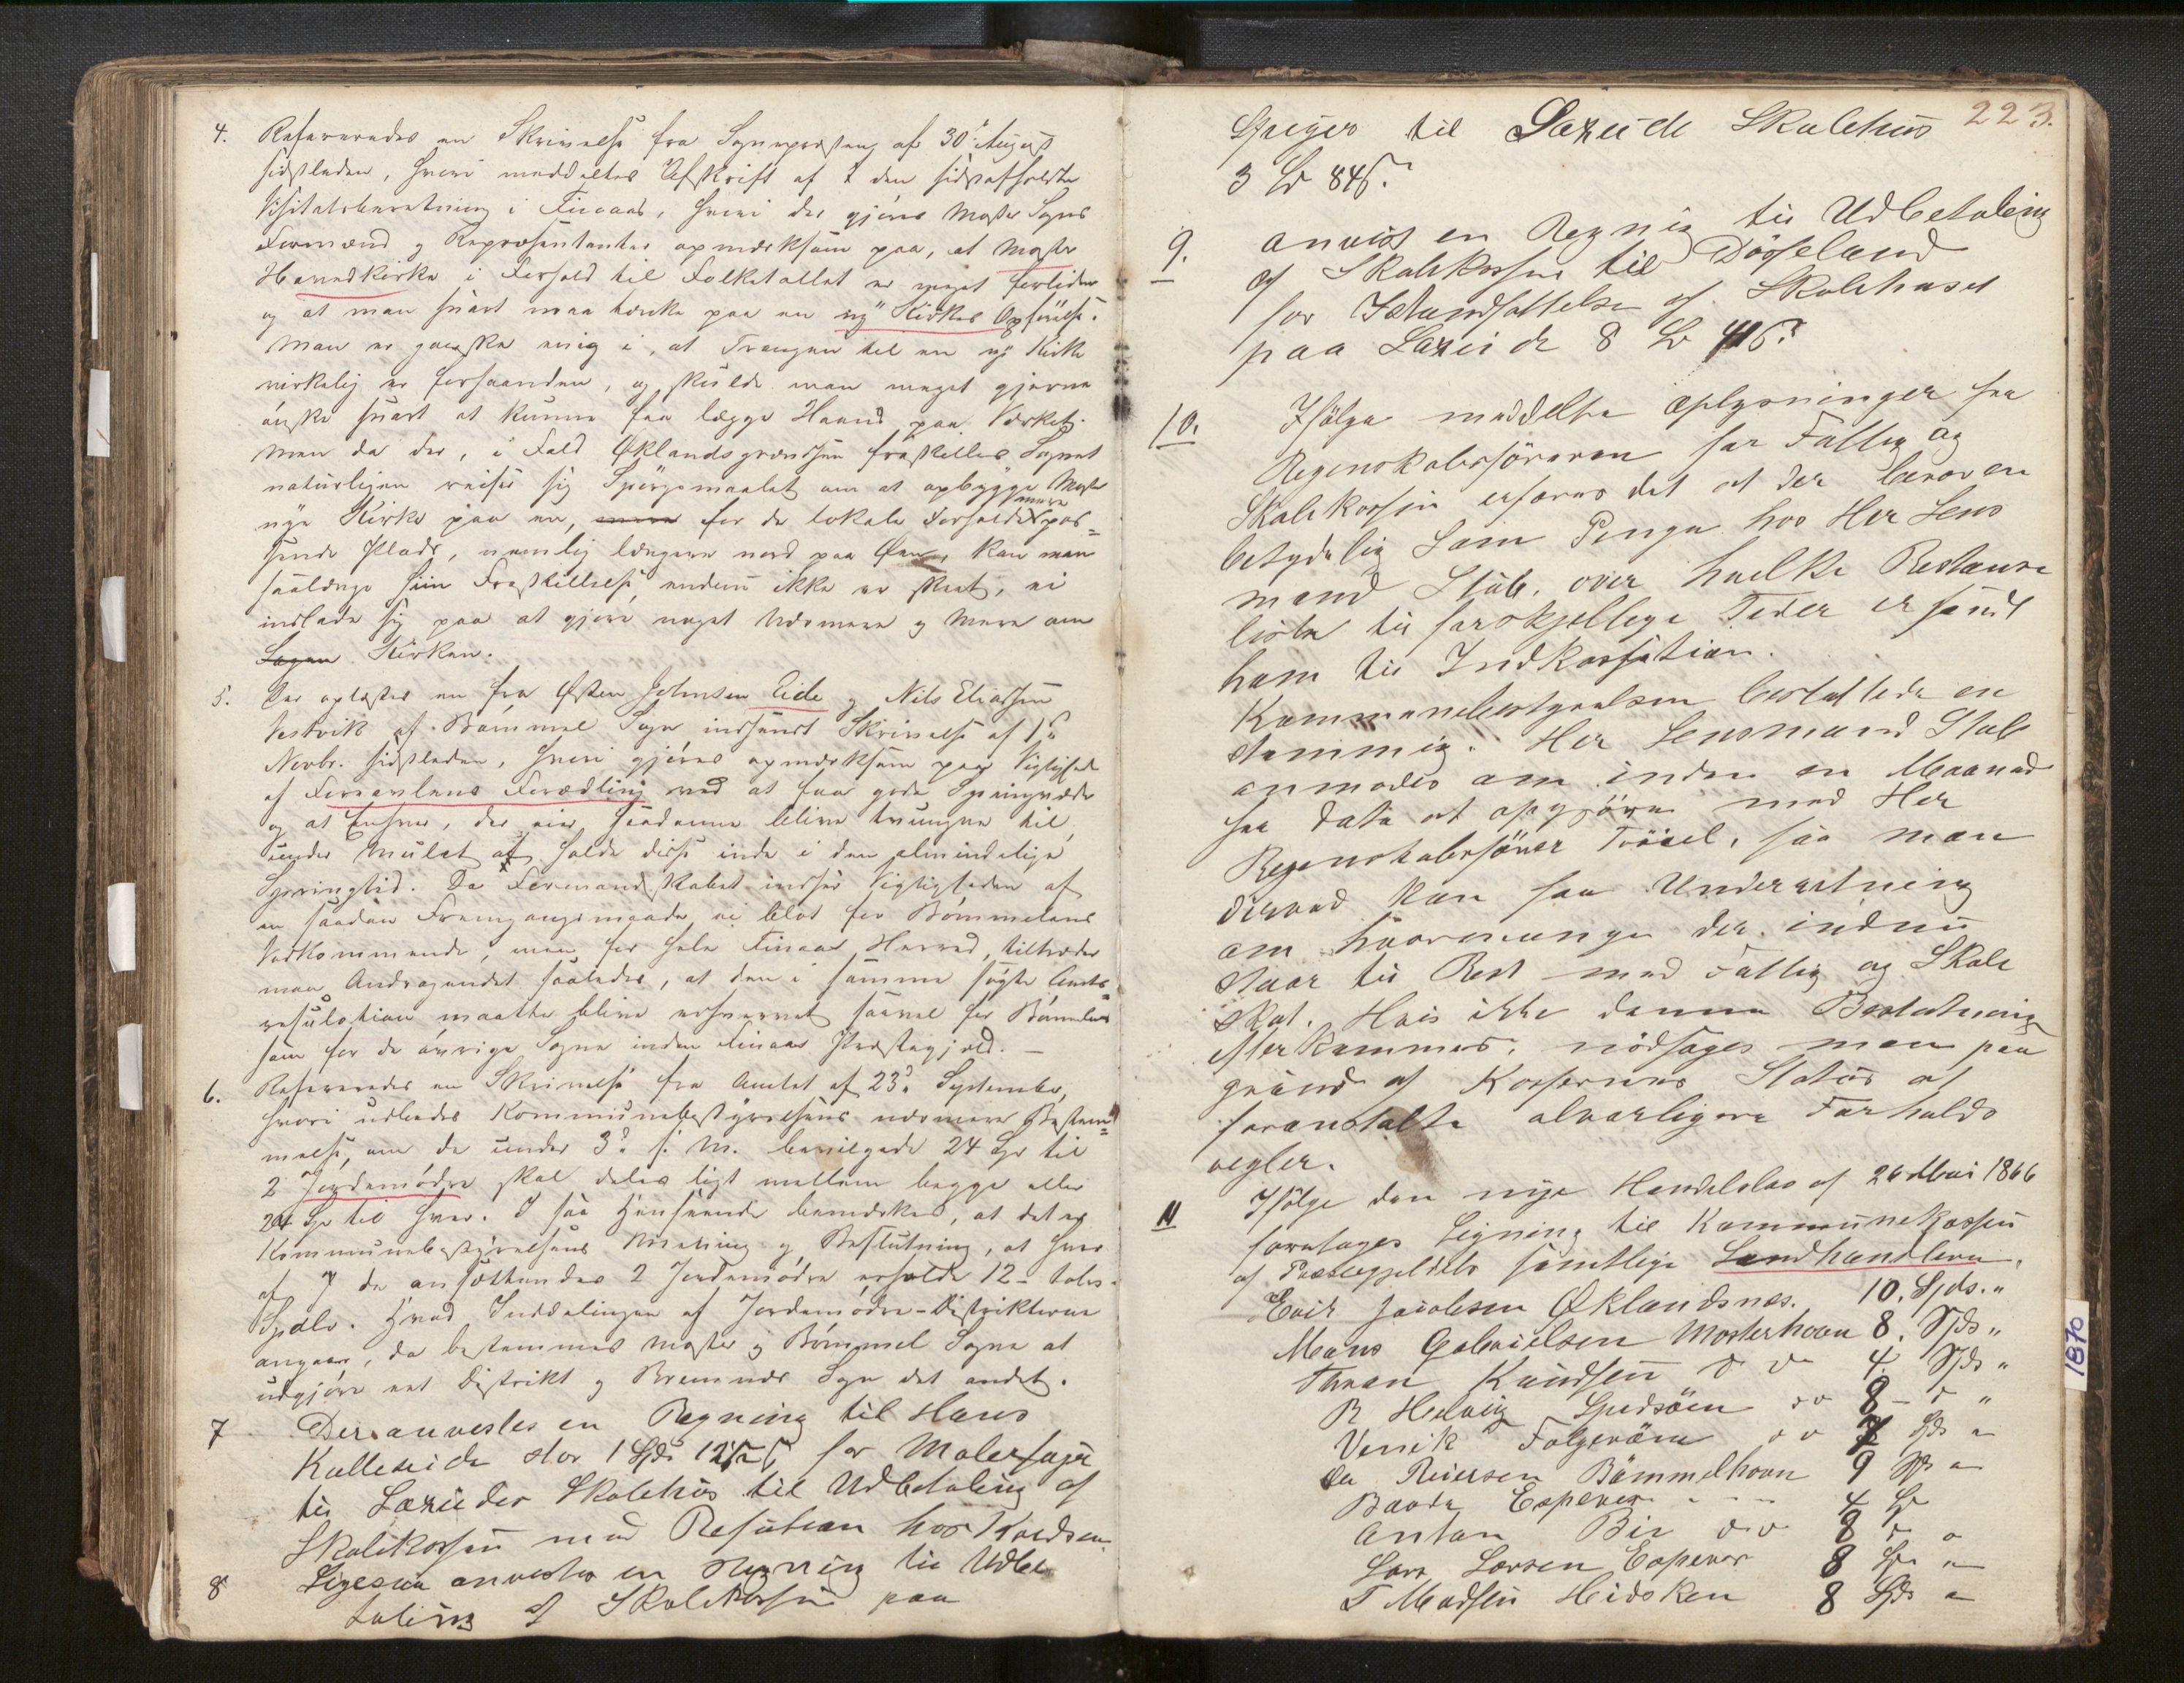 4. Refereredes en Skrivelse fra Sognepræsten af 30te August
sidstleden, hvori meddeltes Afskrift af den sidstafholdte
Visitatsberetning i Finaas, hvori der gjøres Moster Sogns
Formænd og Repræsentanter opmærksom paa, at Moster
Hovedkirke i Forhold til Folketallet er meget forliden
og at man snart maa tænke paa en ny Kirkes Opførelse.
Man er ganske enig i, at Trangen til en ny Kirke
virkelig er forhaanden, og skulde man meget gjerne
ønske snart at kunne faa lægge Haand paa Værket.
Men da der, i Fald Øklandsgrændsen fraskilles Sognet
naturligen reiser sig Spørgsmaalet om at opbygge Moster
nye Kirke paa en, for de lokale Forholde mere pas=
sende Plads, nemlig længere nord paa Øen, kan man
saalænge hiin Fraskillelse endnu ikke er skeet, ei
indlade sig paa at gjøre noget Nærmere og Mere om
Sagen Kirken.
5. Der oplæstes en fra Østen Johnsen Eide og Nils Eliassen
Vestvik af Bømmel Sogn indsendt Skrivelse af 1ste
Novbr. sidstleden, hvori gjøres opmærksom paa Vigtighed
af Faareavlens Forædling ved at faa gode Springvædre
og at Enhver, der eier saadanne bliver tvungne til,
under Mulct at holde disse inde i den almindelige
Springtid. Da Formandskabet indser Vigtigheden af
en saadan Fremgangsmaade ei blot for Bømmeløens
Vedkommende, men for hele Finaas Herred, tiltræder
man Andragendet saaledes, at den i samme søgte Amts=
resulotion maatte blive erhvervet saavel for Bømmeløen
som for de øvrige Sogne inden Finaas Præstegjeld. —
6. Refereredes en Skrivelse fra Amtet af 23de September,
hvori udbedes Kommunebestyrelsens nærmere Bestem=
melse, om de under 3de s. M. bevilgede 24 Spd til
2 Jordemødre skal deles ligt mellem begge eller
24 Spd til hver. I saa Henseende bemærkes, at det er
Kommunebestyrelsens Mening og Beslutning, at hver
af de ansættendes 2 Jordemødre erholde 12 - tolv -
Spdlr. Hvad Inddelingen af Jordemødre-Distrikterne
angaar, da bestemmes Moster og Bømmel Sogne at
udgjøre eet Distrikt og Bremnes Sogn det andet.
7 Der anvistes en Regning til Hans
Kulleseide stor 1 Spd for Malerfage
til Særeides Skolehus til Udbetaling af
Skolekassen med
8 Ligesaa anvistes en Regning til Udbe
taling af Skolekassen paa
223.
Spiger til Særeide Skolehus
3 Spd 84 s.
9. anvist en Regning til Udbetaling
af Skolekassen til Døsseland
for Istandsettelse af Skolehuset
paa Særeide 8 Spd
10. Ifølge meddelte oplysninger fra
Regenskabsføreren for Fattig og
Skolekassen erfares det at der beror en
betydelig Som Penge hos Her Lens
mand Stub, over hvelke Restanse
lister til forskjellege Teder er sendt
ham til Indkassation.
Kommunebestyrelsen besluttede en
stemmig. Her Lensmand Stub
anmodes om inden en Maaned
fra Dato at opgjøre med Her
Regenskabsfører Trøiel, saa man
derved kan faa Underretning
om hvormange der endnu
staar til Rest med Fattig og Skole
skat. Hvis ikke denne Beslutning
efterkommes, nødsages man paa
grund af Kassernes Status at
foranstalte alvorligere Forholds
regler.
11 Ifølge den nye Handelslov af 26 Mai 1866
foretages Ligning til Kommunekassen
af Præstegjeldets samtlige Landhandlere.
Evik Jacobsen Øklandsnes. 10. Spds. "
Mons Gabrielsen Mosterhavn 8. Spds "
Knudsen do do 4. Spds "
R Helvig do 8 - do "
Venik Folgerøen do Spds "
Reiersen Bømmelhavn 9 Spds "
Baade Espever - - - 4 Spd
Anton do 8 do "
Lars Larsen Espever 8 Spd "
T Madsen Hidsken 8 Spds "
1870